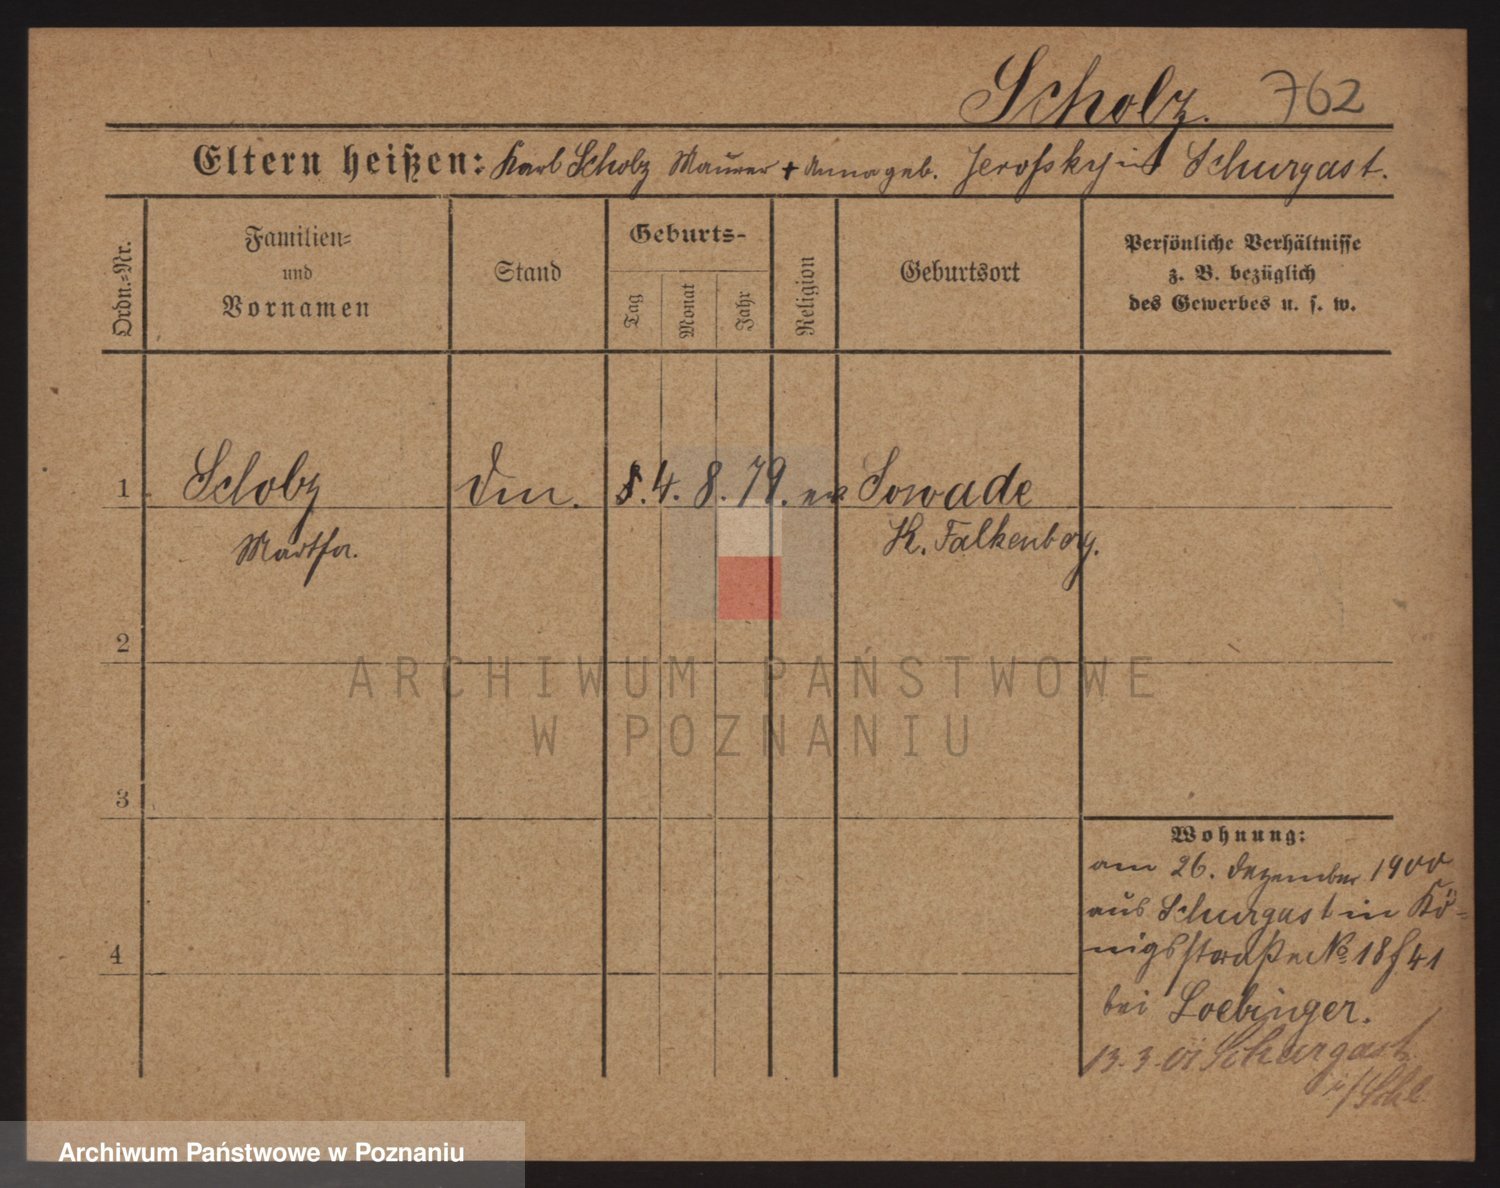 Scholz. 762
Eltern heißen: Karl Scholz Maurer + Anna geb. Jerofsky in Schurgast.
Ordn.-Nr.
Familien-
und
Vornamen
Stand
Geburts-
Tag
Monat
Jahr
Religion
Geburtsort
Persönliche Verhältnisse
z. B. bezüglich
des Gewerbes u. s. w.
1 Scholz 4. 8. 79. ev Sowade
Martha. K. Falkenberg.
2
ARCHIWUM PAŃSTWOWE
W POZNANIU
3
Wohnung:
am 26. Dezember 1900
aus Schurgast in Kö-
nigsstraße No 18/41
4
bei Loebinger.
13. 3. 01 Schurgast
Archiwum Państwowe w Poznaniu